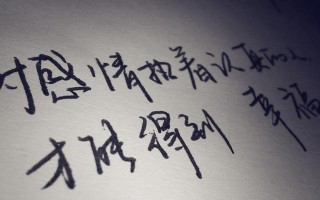 对感情抱着认真的人
才能得到 幸福